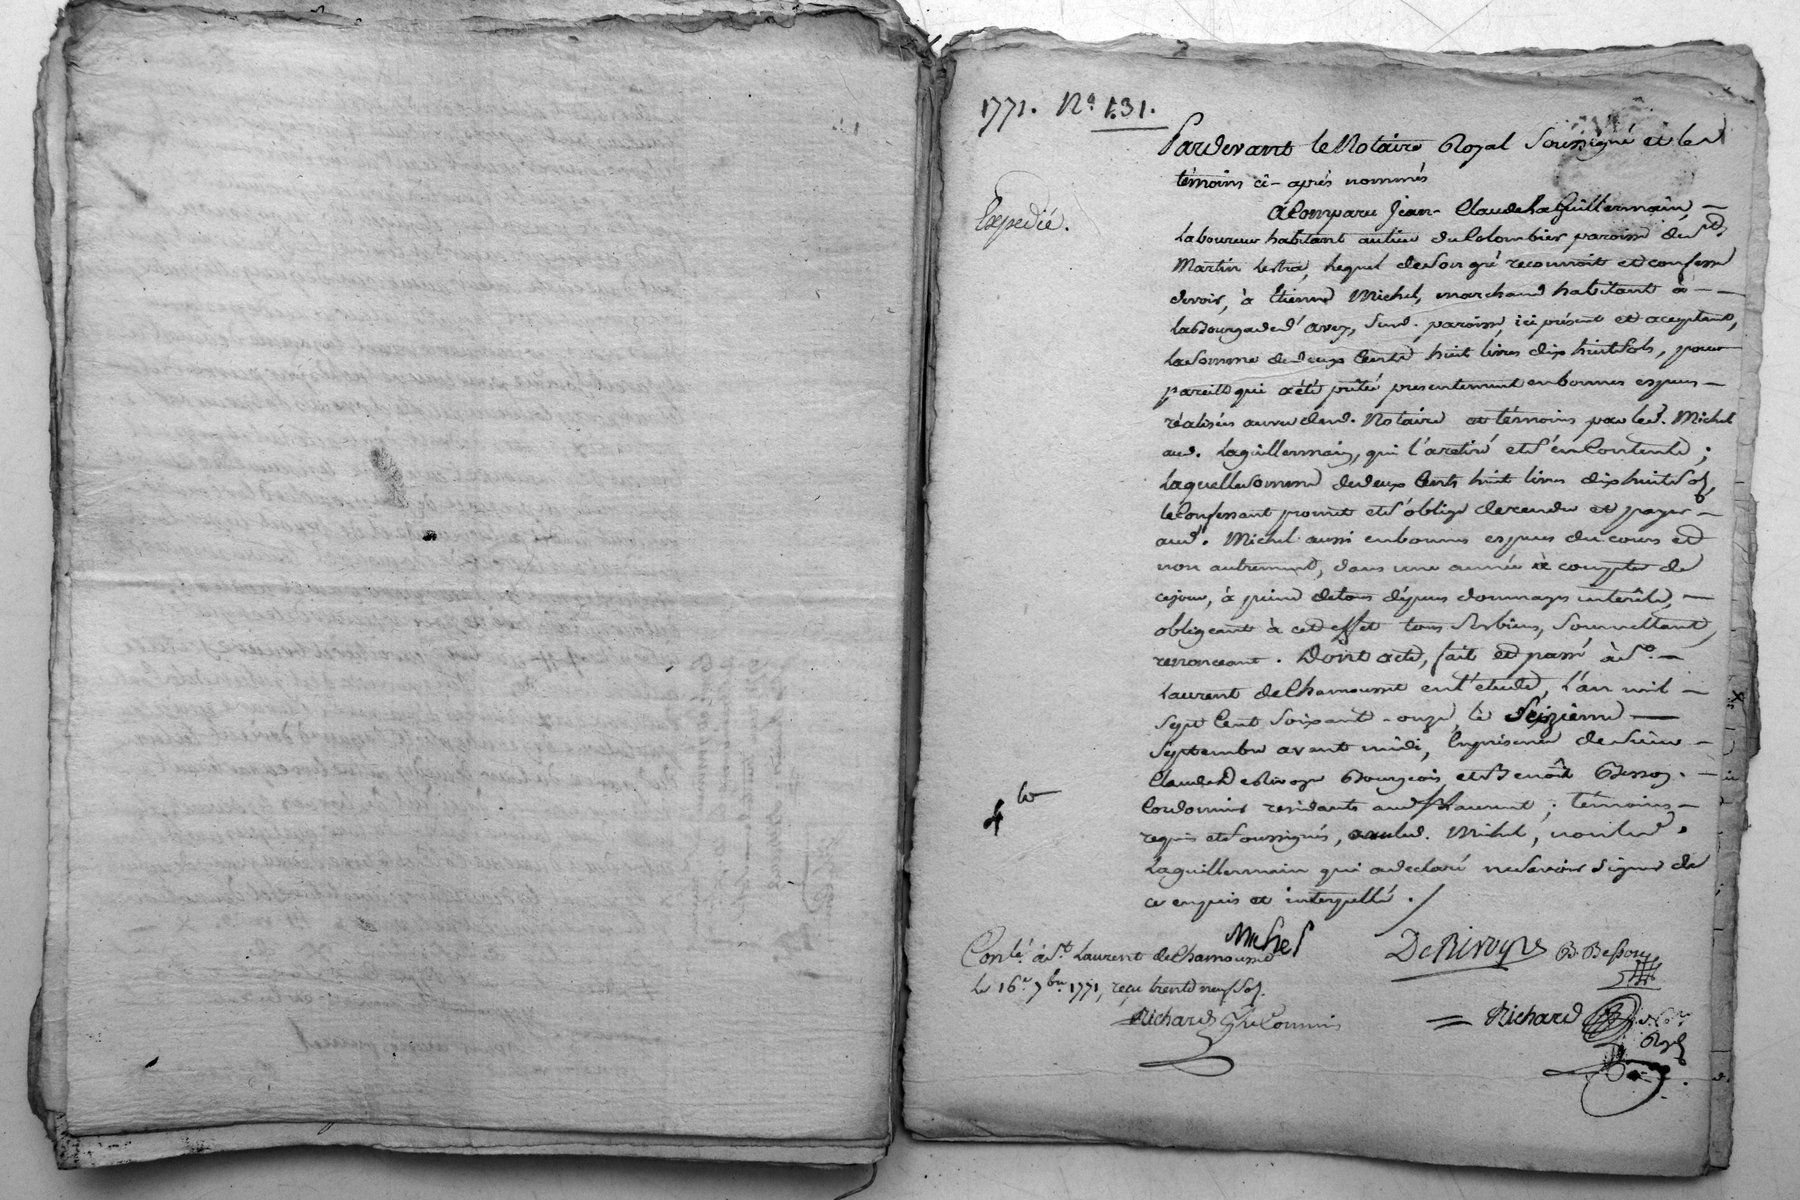 1771. No. 131.
Pardevant le Notaire Royal Soussigné et les
témoins ci-après nommés
Expedié.
A Comparu Jean-Claude Laguillermain -
laboureur habitant au lieu du Colombier paroisse de St
Martin Lestra, Lequel de son gré reconnoit et confesse
devoir, à Etienne Michel, marchand habitant à - -
la bourgade d'avez, susd. paroisse, ici présent et aceptant,
la somme de deux Cents huit livres dix huit sols, pour
pareille qui a été prêtée presentement en bonnes especes -
réalisées au vu dud. Notaire et témoins par led. Michel
aud. Laguillermain, qui l'a retiré et s'en Contente ;
laquelle somme de deux Cents huit livres dix huit sols,
le Confessant promet et s'oblige de rendre et payer -
aud. Michel aussi en bonnes especes du cours et
non autrement, dans une année à compter de
ce jour, à peine de tous dépens dommages interêts, -
obligeant à cet effet tous ses biens, soumettant,
renonceant. Dont acte, fait et passé à St. -
Laurent de Chamousset en l'etude, l'an mil -
sept Cent soixante-onze, le Seizieme -
Septembre avant midi, En presence de sieur -
Claude Derivoyre Bourgeois, et Benoît Besson -
Cordonnier residants aud. St Laurent ; témoins -
requis et soussignés, avec led. Michel, non led.
Laguillermain qui a declaré ne savoir signer de
ce enquis et interpellé. /
Michel
DeRivoyre B. Besson
Conlé. à St. Laurent de Chamousset
le 16e. 7bre 1771, reçu trente neuf sols.
Richard
Richard Nore. Royal